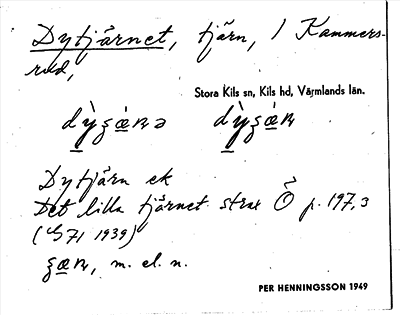 Dytjärnet, tjärn, i Kammers-
rud,
Stora Kils sn, Kils hd, Värmlands län.
Dytjärn ek
Det lilla tjärnet strax Ö p. 197,3
(G71 1939)
m. el. n.
PER HENNINGSSON 1949